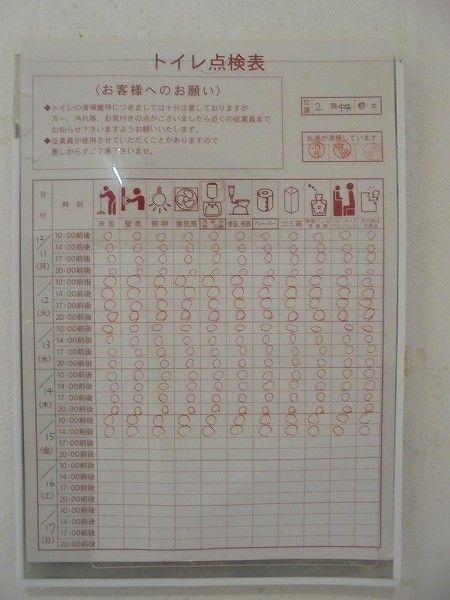 トイレ点検表
〈お客様へのお願い〉
◆トイレの清掃維持につきましては十分注意しておりますが
万一、汚れ等、お気付きの点がございましたら近くの従業員まで
お知らせ下さいますようお願いいたします。
◆従業員が使用させていただくことがありますので
悪しからずご了承下さいませ。
位置 2 階 男・女
私達が清掃しています
日付 時刻
床面 壁面 照明 換気扇 便器、便座 ペーパー ゴミ箱
12/11(月) 10:00前後
14:00前後
17:00前後
20:00前後
12(火) 10:00前後
14:00前後
17:00前後
20:00前後
13(水) 10:00前後
14:00前後
17:00前後
20:00前後
14(木) 10:00前後
14:00前後
17:00前後
20:00前後
15(金) 10:00前後
14:00前後
17:00前後
20:00前後
16(土) 10:00前後
14:00前後
17:00前後
20:00前後
17(日) 10:00前後
14:00前後
17:00前後
20:00前後